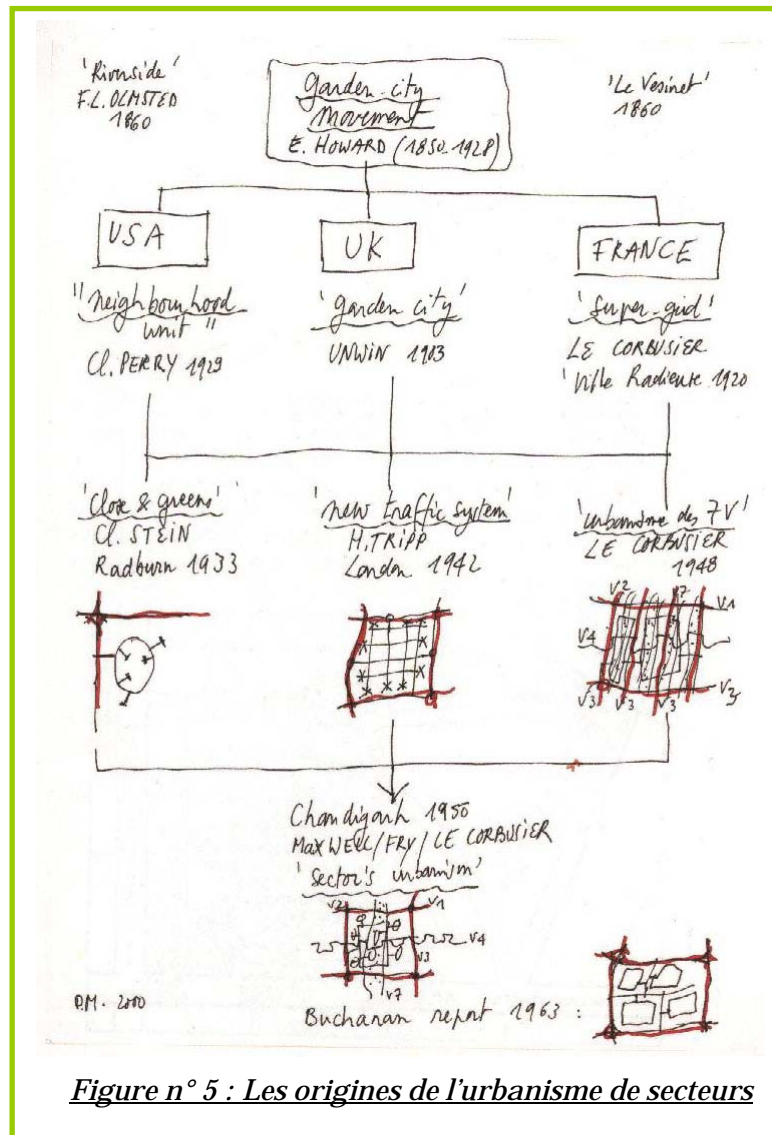 'Riverside'
F.L. OLMSTED
1860
garden-city
movement
E. HOWARD (1850-1928)
'Le Vesinet'
1860
USA
UK
FRANCE
"neighbourhood
unit"
Cl. PERRY 1929
'garden city'
UNWIN 1903
'Super-grid'
LE CORBUSIER
'Ville Radieuse 1920
'Close & greens'
Cl. STEIN
Radburn 1933
'new traffic system'
H. TRIPP
London 1942
'urbanisme des 7V'
LE CORBUSIER
1948
V2 V7
V1
V4
V3 V3 V3 V3
Chandigarh 1950
MAXWELL/FRY/LE CORBUSIER
'Sector's urbanism'
V2 V1
V4
V3
V7
P.M. 2000
Buchanan report 1963 :
Figure n° 5 : Les origines de l'urbanisme de secteurs